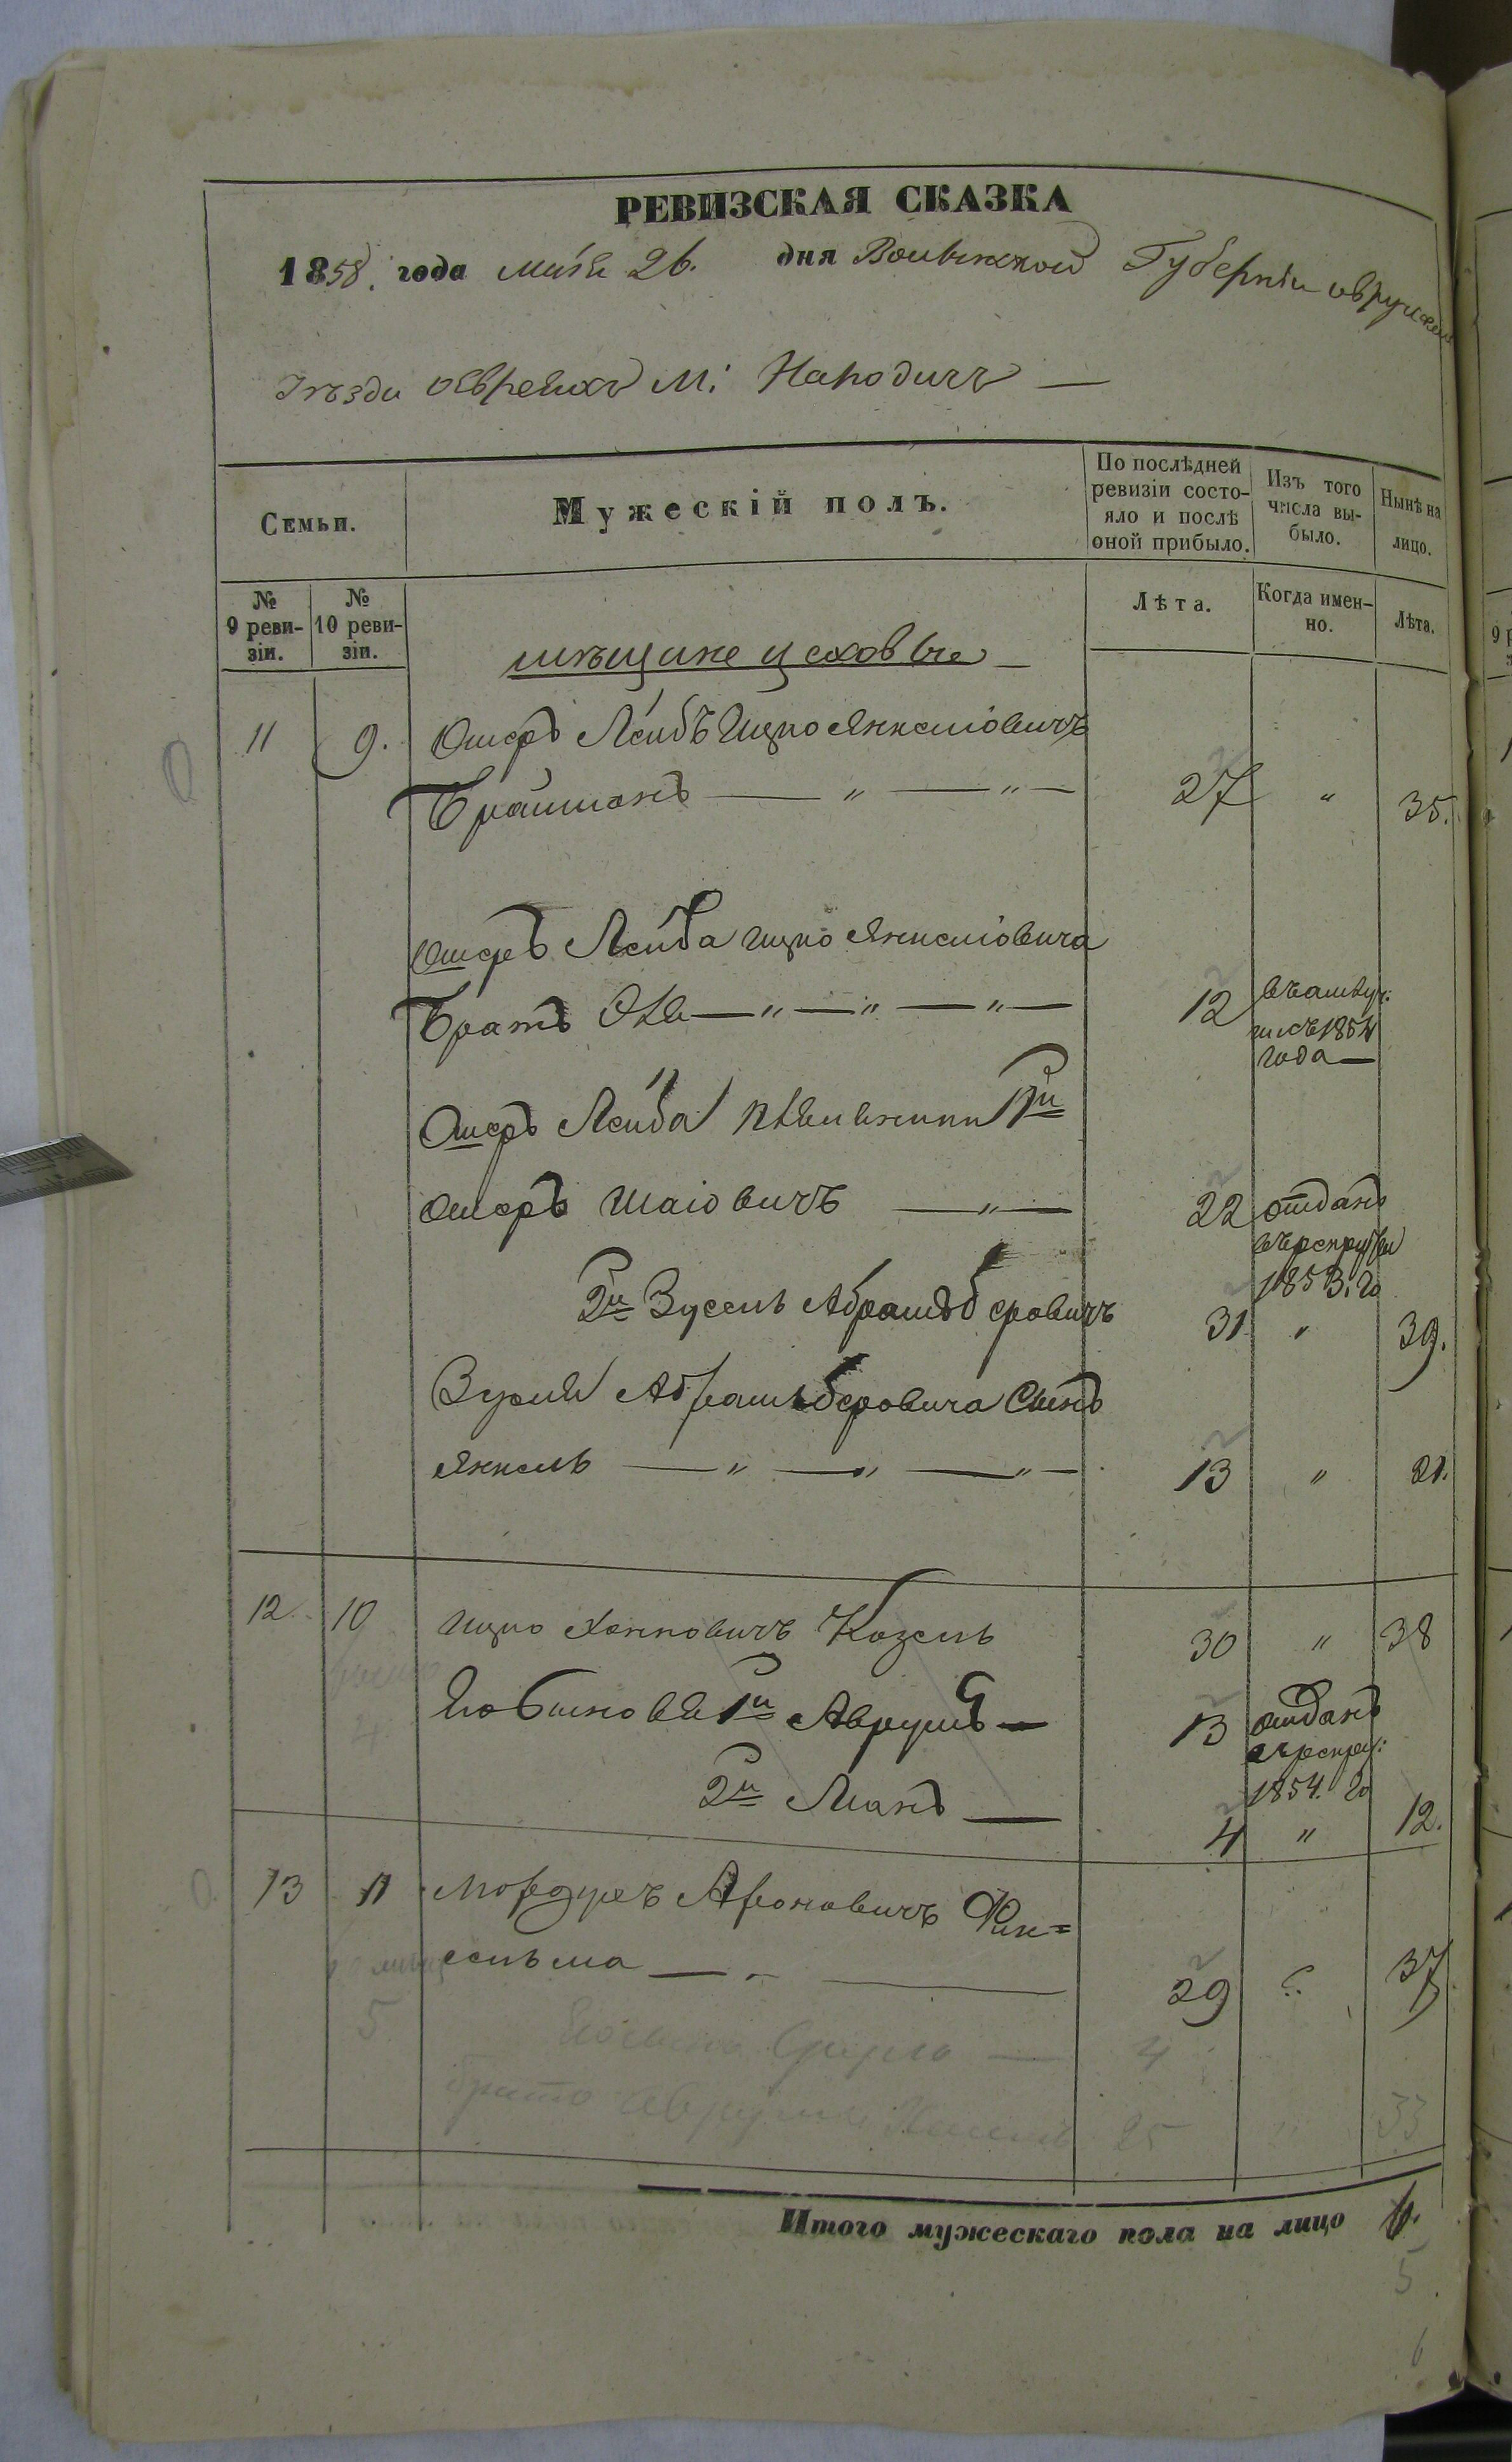 РЕВИЗСКАЯ СКАЗКА
1858. года Маія 26. дня Волынской Губерніи Овручскаго
Уѣзда о Евреяхъ М: Народичъ —
Семьи.
Мужескій полъ.
По послѣдней ревизіи состо-
яло и послѣ
оной прибыло.
Изъ того
числа вы-
было.
Нынѣ на
лицо.
№
9 реви-
зіи.
№
10 реви-
зіи.
Лѣта.
Когда имен-
но.
Лѣта.
мѣщане цеховые —
11 9. Ошеръ Лейбъ Ицко Янкеліовичъ
Фрайманъ — " — " — 27 " 35.
Ошеръ Лейба Ицко Янкеліовича
Братъ — " — " — " — 12
1854
года —
Ошеръ Лейба племянники 1й
Ошеръ Шаіовичъ — " — 22 отданъ
въ рекруты
1853. го
2й Зусель Абрамъ Беровичъ 31 " 39.
Зуселя Абрамъ Беровича Сынъ
Янкель — " — " — " — 13 " 21.
12 10 Ицко Хаимовичъ Козель 30 " 38
Его Сыновья 1й Аврумъ — 13 отданъ
въ рекру:
1854. го
2й Манъ — 4 " 12.
13 11 Мордухъ Ароновичъ Фин=
кельма — " — 29 " 37
5.
4
братъ 25 33
Итого мужескаго пола на лицо
5
6